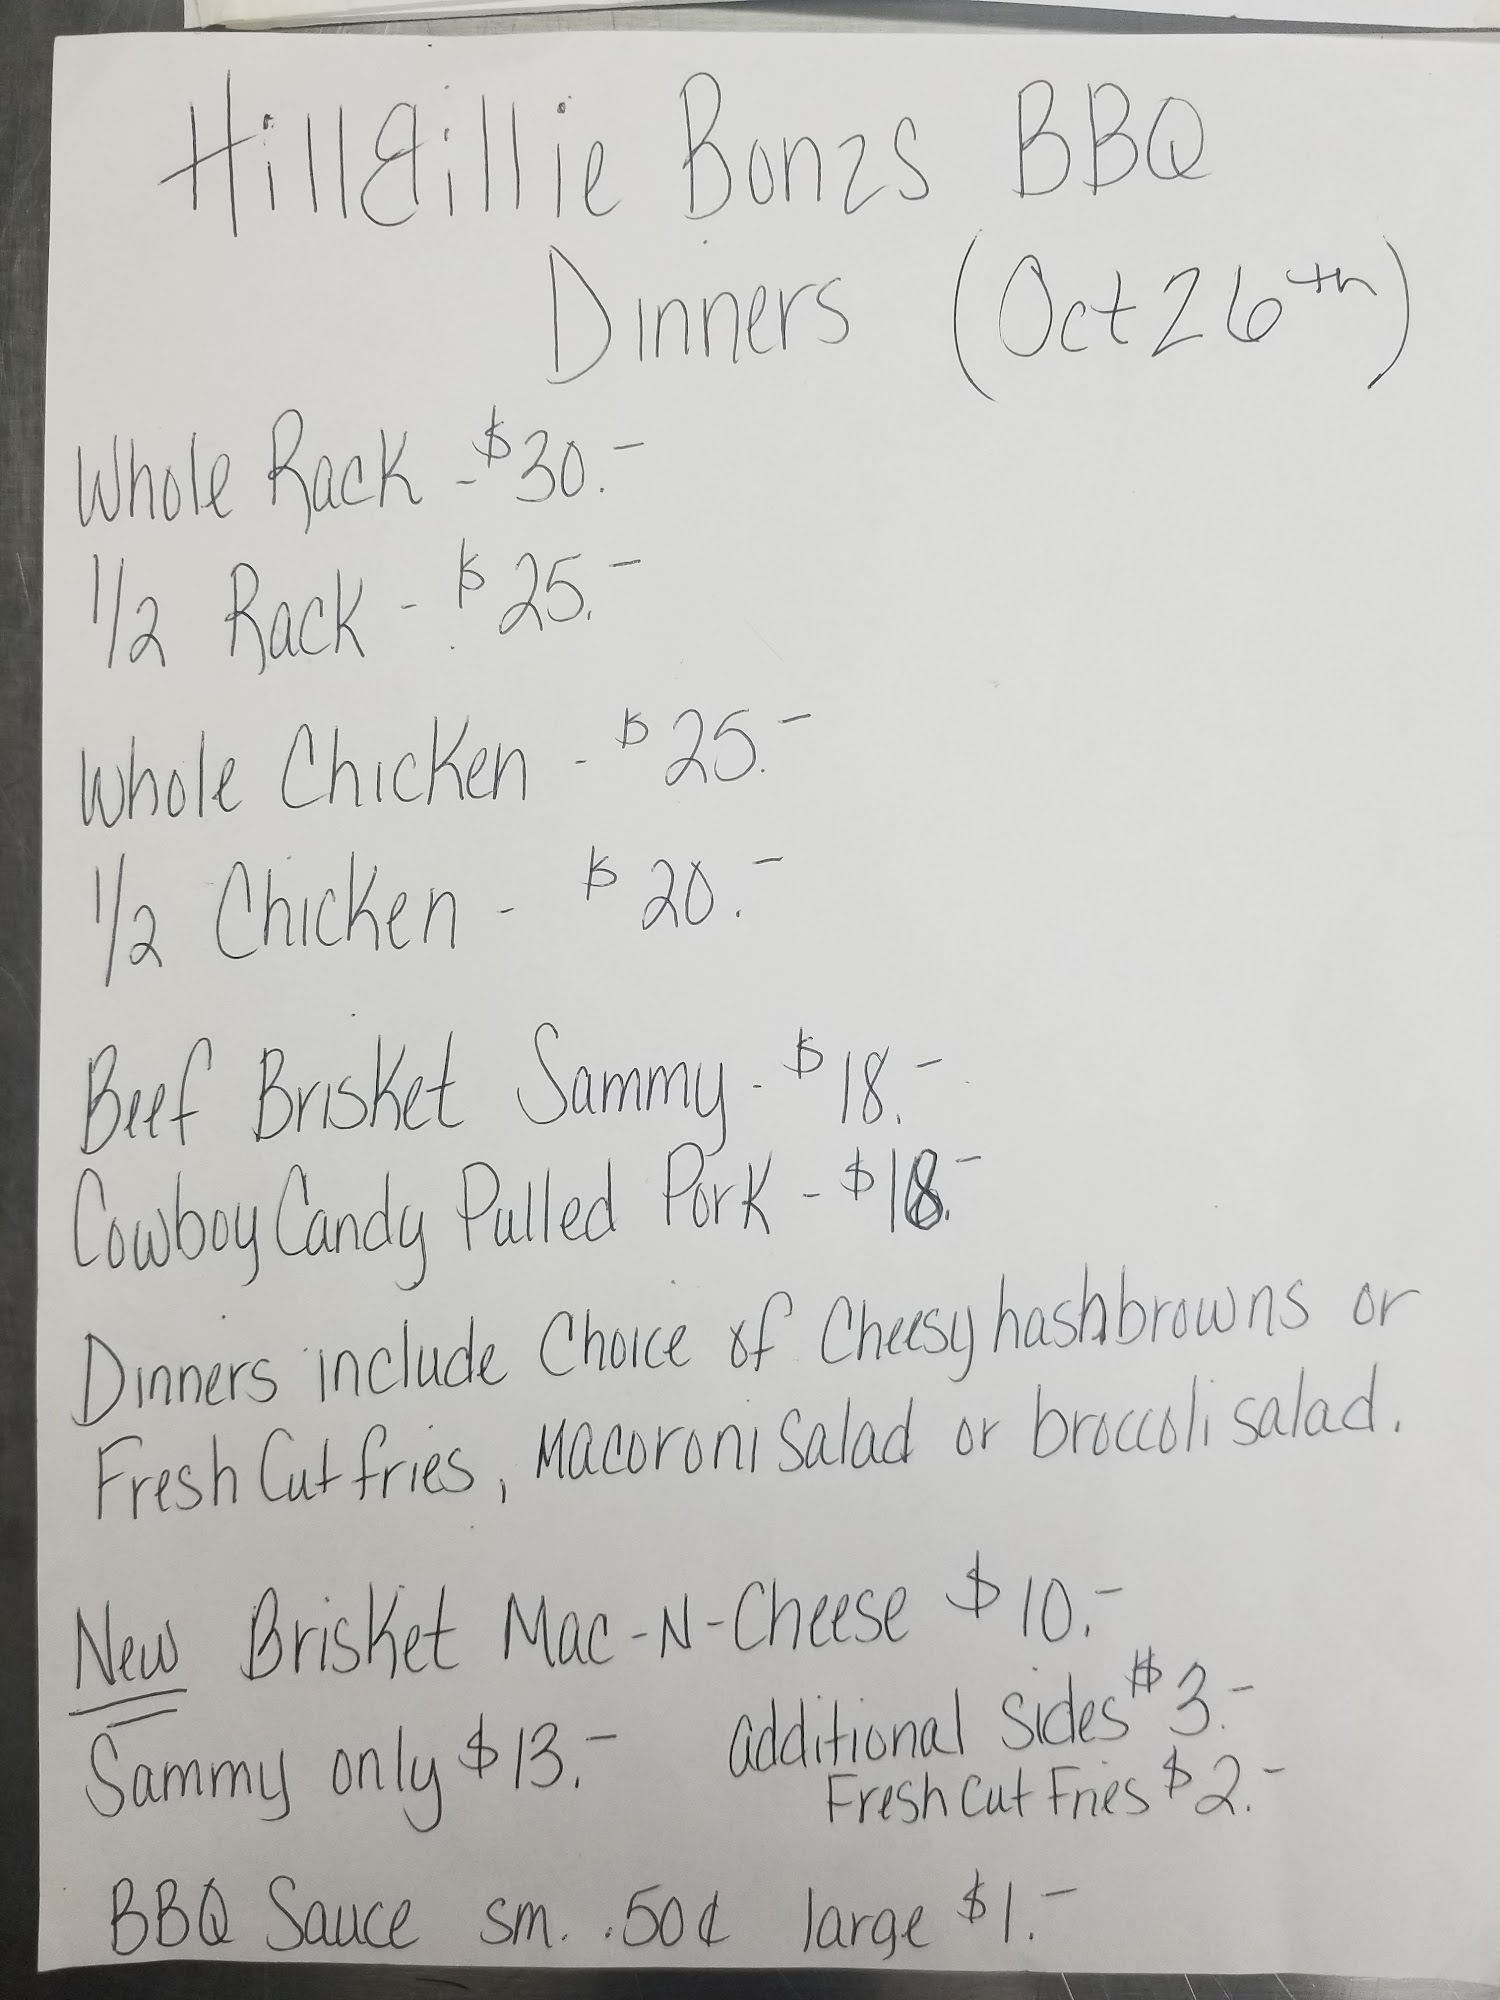 HillBillie Bonzs BBQ
Dinners (Oct 26th)
Whole Rack - $30.-
1/2 Rack - $25.-
Whole Chicken - $25.-
1/2 Chicken - $20.-
Beef Brisket Sammy - $18.-
Cowboy Candy Pulled Pork - $18.-
Dinners include Choice of Cheesy hashbrowns or
Fresh Cut fries, Macoroni Salad or broccoli salad.
New Brisket Mac-N-Cheese $10.-
Sammy only $13.- additional sides $3.-
Fresh Cut Fries $2.-
BBQ Sauce sm. .50¢ large $1.-